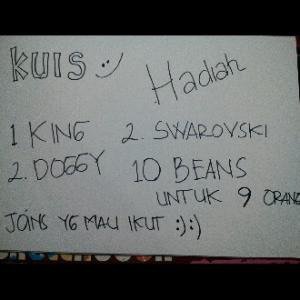 KUIS :)
Hadiah
1 KING 2. SWAROVSKI
2. DOGGY 10 BEANS
UNTUK 9 ORANG
JOINS YG MAU IKUT :):)